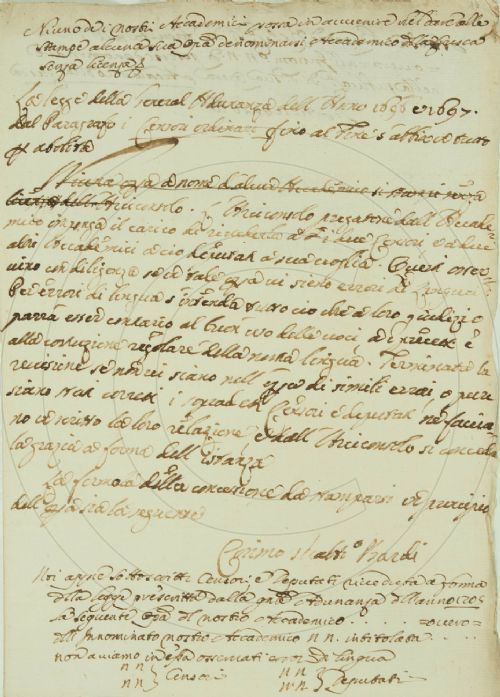 Niuno de i nostri Accademici possa in avvenire nel dare alle
stampe alcuna sua opera denominarsi Accademico della Crusca
senza licenza
La legge della General Adunanza dell' Anno 1696 e 1697.
dal Paragrafo i Censori ordinari fino al fine s'abbia tutto
abolita
Niuna opera a nome d'alcun Accademico si stampi senza
Arciconsolo. L'Arciconsolo pregatone dall' Accade-
mico il carico di rivederla a i due Censori e a due
altri Accademici a ciò deputati a sua voglia. Questi osser-
vino con diligenza se in tale opera vi sieno errori di lingua.
Per errori di lingua s'intenda tutto ciò che a loro giudizio
parrà esser contrario al buon uso delle voci, a i precetti e
alla costruzione regolare della nostra lingua. Terminata la
revisione se non vi siano nell' opera di simili errori, o pure
siano stati corretti i Censori e deputati ne faccia-
no in scritto la loro relazione e dall' Arciconsolo si conceda
la grazia a forma dell' istanza
La forma della concessione da stamparsi in principio
dell' opera sia la seguente
Cosimo Bardi
Noi appiè sottoscritti Censori, e Deputati riveduta a forma
della legge prescritta dalla Adunanza dell' anno 1705
la seguente opera del nostro Accademico ..... ovvero
dell' Innominato nostro Accademico N N. intitolata ....
non aviamo in essa osservati errori di lingua
N N } Censori N N } Deputati
N N N N